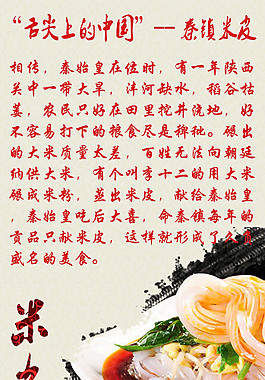 “舌尖上的中国”--秦镇米皮
相传，秦始皇在位时，有一年陕西
关中一带大旱，沣河缺水，稻谷枯
萎，农民只好在田里挖井浇地，好
不容易打下的粮食尽是秕秕。碾出
的大米质量太差，百姓无法向朝廷
纳供大米，有个叫李十二的用大米
碾成米粉，蒸出米皮，献给秦始皇
，秦始皇吃后大喜，命秦镇每年的
贡品只献米皮，这样就形成了久负
盛名的美食。
米